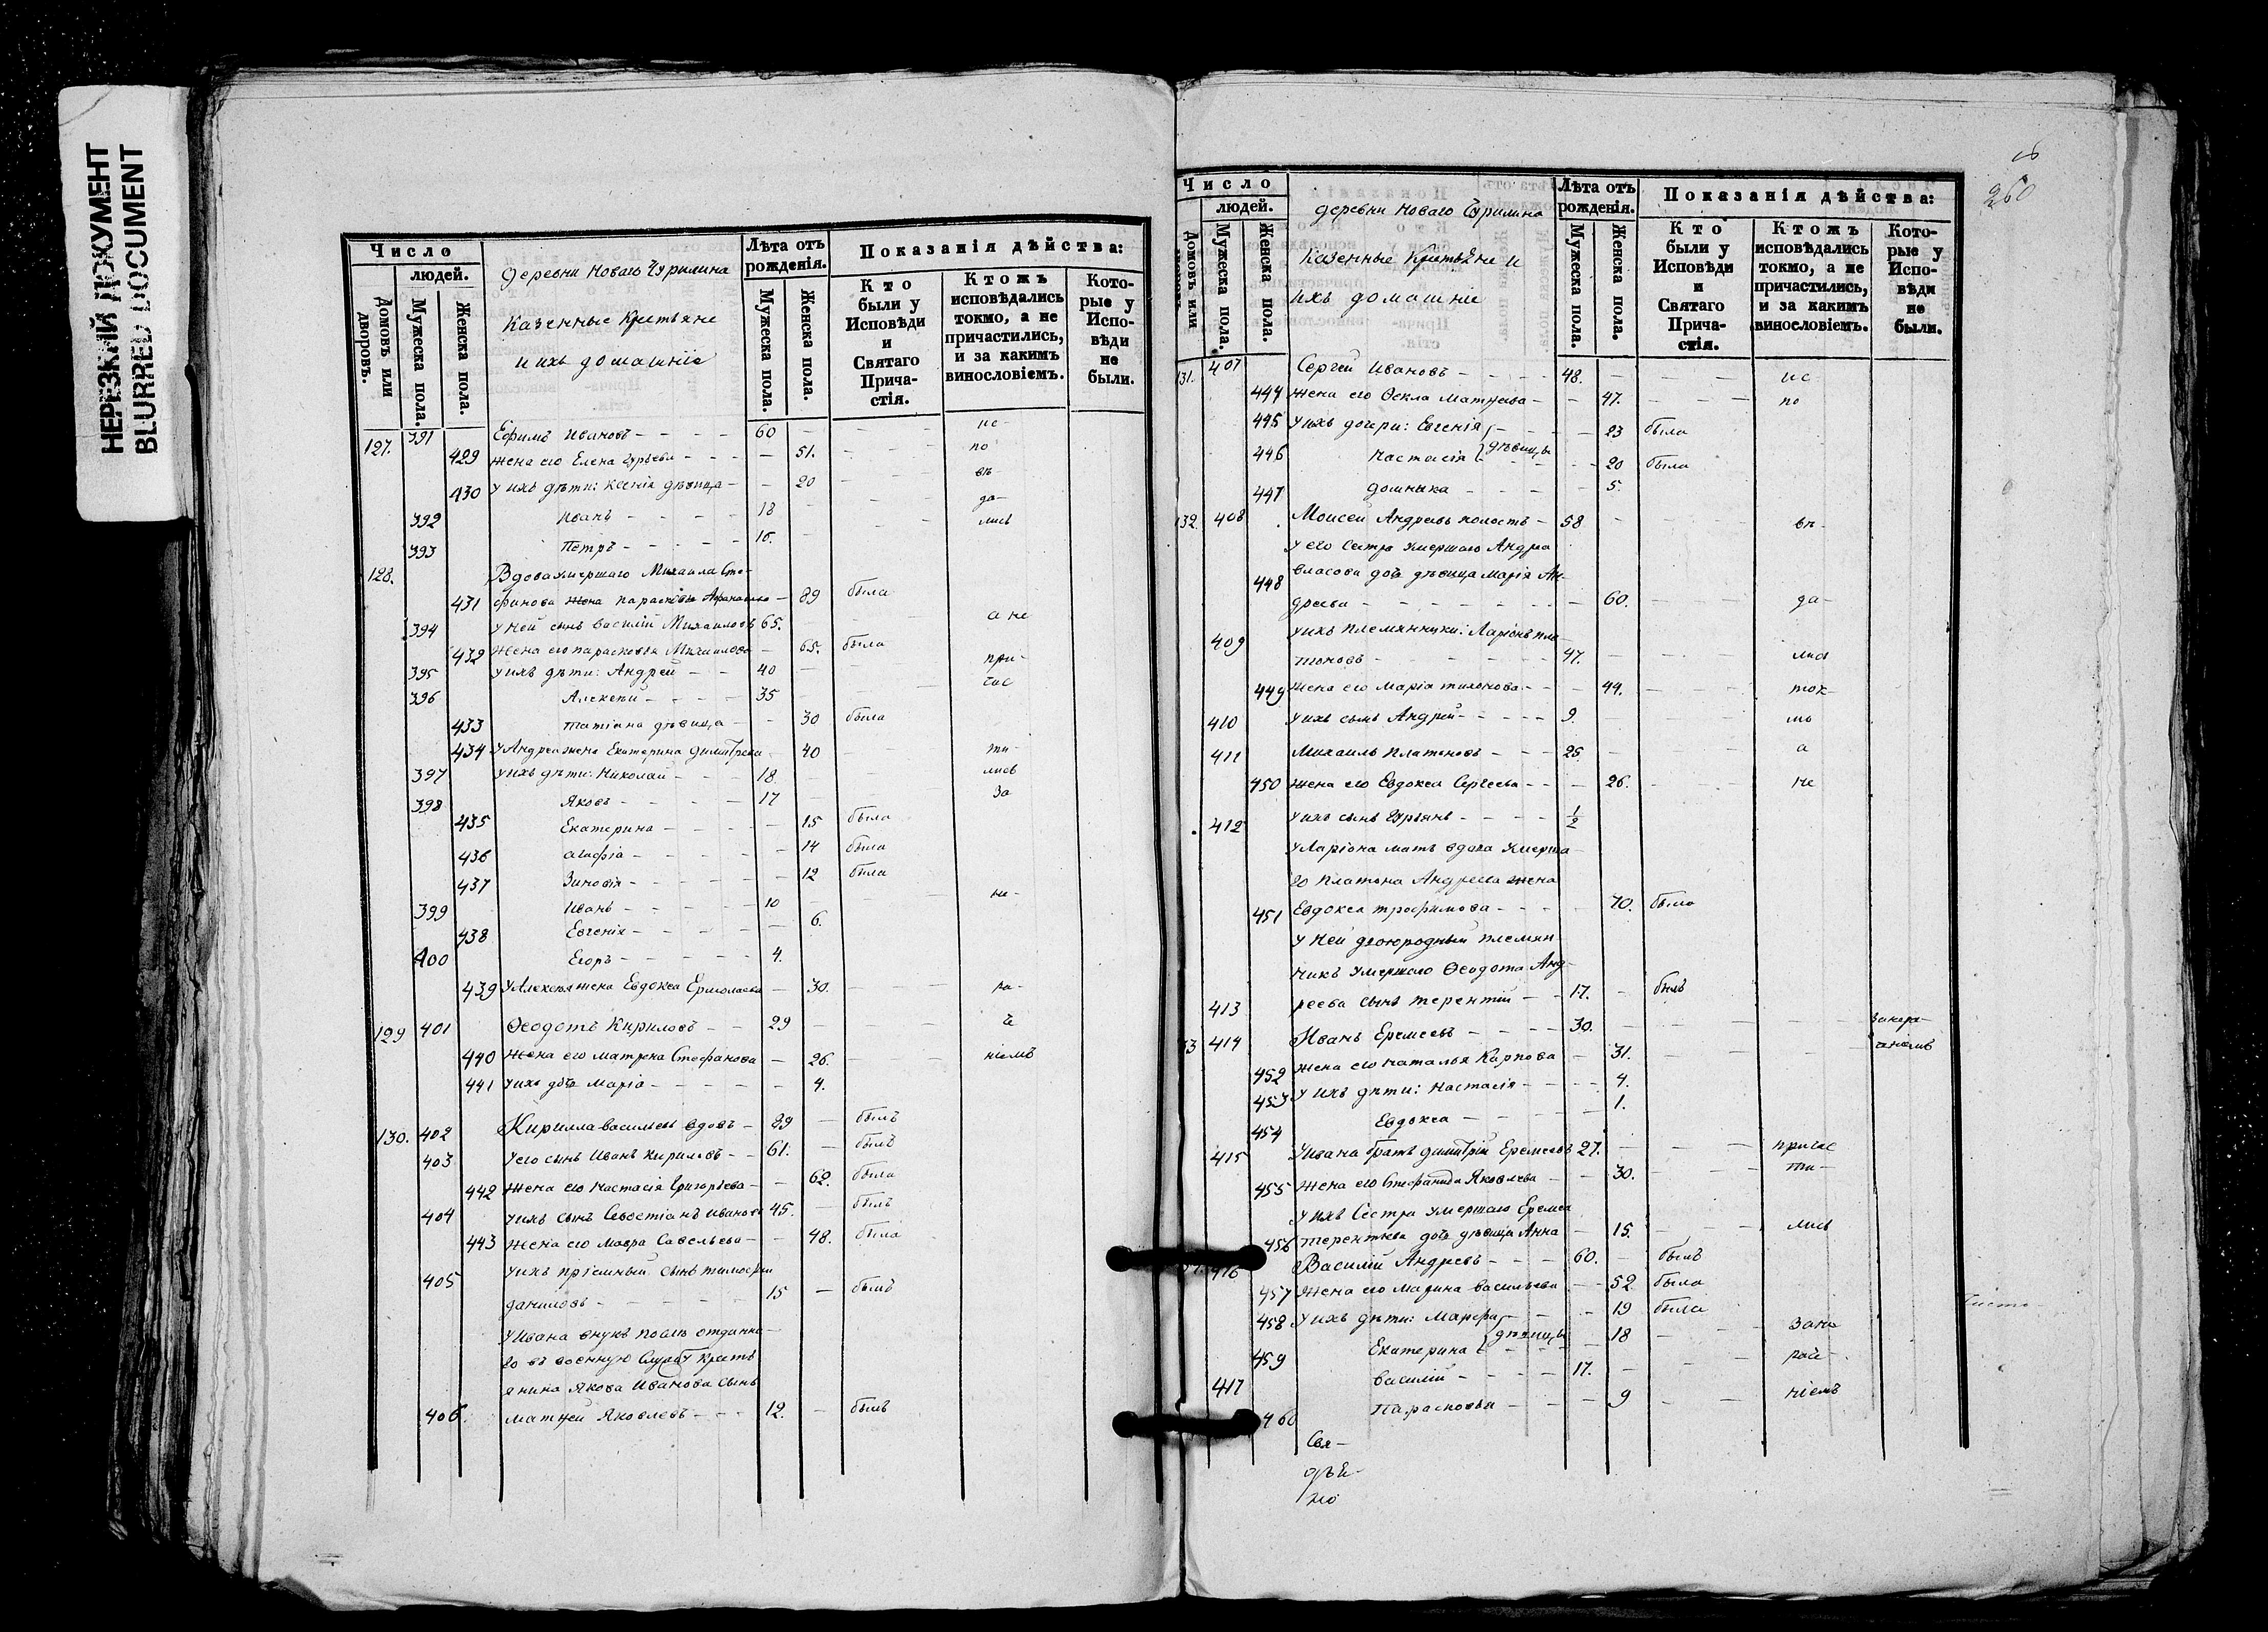 НЕРЕЗКИЙ ДОКУМЕНТ
BLURRED DOCUMENT
Число
людей.
Домовъ или дворовъ.
Мужеска пола.
Женска пола.
деревни Новаго Чурилина
Казенные Крестьяне
и ихъ домашніе
Лѣта отъ рожденія.
Мужеска пола.
Женска пола.
Показанія дѣйства:
Кто были у Исповѣди и Святаго Причастія.
Ктожъ исповѣдались токмо, а не причастились, и за какимъ винословіемъ.
Которые у Исповѣди не были.
127. 391 Ефимъ Ивановъ - - - - 60 - - - ис-
429 жена его Елена Гурьева - - - - 51. - - по
430 у ихъ дѣти: Ксенія дѣвица - - 20 - - вѣ-
392 Иванъ - - - - 18 - - - да-
393 Петръ - - - - - 16. - - - лись
128. Вдова умершаго Михаила Сте-
431 фанова жена Параскева Афанасьева - 89 была
394 у ней сынъ Василій Михаиловъ 65. - - а не
432 жена его Парасковья Михаилова - 65. была
395 у ихъ дѣти: Андрей - - 40 - - при-
396 Алексѣй - - - - 35 - - час
433 Татіана дѣвица - - 30 была
434 У Андрея жена Екатерина Димитрева 40 - - ти-
397 у ихъ дѣти: Николай - - - 18 - - лись
398 Яковъ - - - - - 17 - - за
435 Екатерина - - - - - 15 была
436 Агафія - - - - - 14 была
437 Зиновія - - - - - 12 была
399 Иванъ - - - - - 10 - - - не-
438 Евгенія - - - - - 6.
400 Егоръ - - - - - - 4.
439 У Алексѣя жена Евдокса Ермолаева - 30. - - - ра-
129 401 Ѳеодотъ Кириловъ - - 29 - - -
440 жена его Матрена Стефанова - 26. - - ніемъ
441 у ихъ дочь Марія - - - - - - 4.
130. 402 Кирилла Васильевъ вдовъ - 89 - былъ
403 У его сынъ Иванъ Кириловъ - - 61. - былъ
442 Жена его Настасія Григорьева - - 62. была
404 у ихъ сынъ Севостіанъ Ивановъ 45. - былъ
443 Жена его Мавра Савельева - - 48. была
405 у ихъ пріемный сынъ Тимофей
даниловъ - - - - - - 15 - былъ
У Ивана внукъ послѣ отданна-
го въ военную Службу Кресть
янина Якова Иванова сынъ
406. Матѳей Яковлевъ - - - 12. - былъ
260
Число
людей.
Домовъ или
Мужеска пола.
Женска пола.
деревни Новаго Чурилина
Казенные Крестьяне и
Ихъ домашніе
Лѣта отъ рожденія.
Мужеска пола.
Женска пола.
Показанія дѣйства:
Кто были у Исповѣди и Святаго Причастія.
Ктожъ исповѣдались токмо, а не причастились, и за какимъ винословіемъ.
Которые у Исповѣди не были.
131. 407 Сергей Ивановъ - - - - 48. - - - ис-
444 Жена его Ѳекла Матѳеева - - 47. - - - по
445 у ихъ дочери: Евгенія - - - 23 была
446 Настасія } дѣвицы - - 20 была
447 домника - - - - - 5.
132. 408 Моисей Андреевъ холостъ - 58 - - - вѣ-
У его Сестра умершаго Андрея
448 Власова дочь дѣвица Марія Ан-
дреева - - - - - - - - 60. - - да-
409 у ихъ Племянники: Ларіонъ Пла-
тоновъ - - - - - - 47. - - - лись
449 Жена его Марія Тихонова - - - 44. - - ток-
410 у ихъ сынъ Андрей - - - - - 9. - - мо
411 Михаилъ Платоновъ - - - 25. - - а
450 Жена его Евдокса Сергеева - - - 26. - - не
412 у ихъ сынъ Гурьянъ - - - - 1/2
У Ларіона мать вдова Умерша-
го Платона Андреева жена
451 Евдокса Трофимова - - - - 70. была
У Ней двоюродный племян-
никъ умершаго Ѳеодота Анд-
413 реева сынъ Терентій - - 17. - былъ
33 414 Иванъ Еремеевъ - - - - 30. - - - - занера-
452 жена его Наталья Карпова - 31. - - -
453 у ихъ дѣти: Настасія - - - - 4.
454 Евдокса - - - - - 1.
415 У Ивана братъ Димитрій Еремеевъ 27. - - - причас
455 Жена его Стефанида Яковлева - - 30. - - ти-
У ихъ Сестра умершаго Еремея
456 Терентьева дочь дѣвица Анна - 15. - - - лись
416 Василій Андреевъ - - - 60. - былъ
457 Жена его Марина Васильева - - 52 была
458 у ихъ дѣти: Марфа - - - 19 была
459 Екатерина } дѣвицы - 18 - - зане
417 Василій - - - - 17. - - - раче-
460 Парасковья - - - - 9 - - ніемъ
Свя-